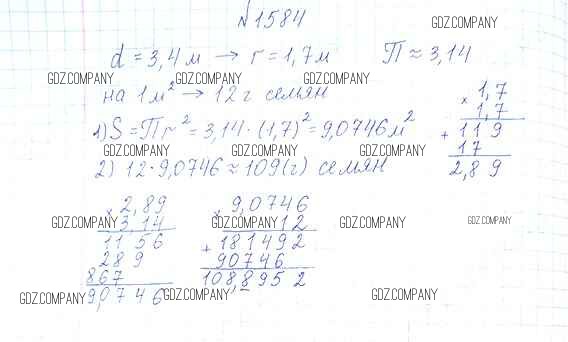 №1584
GDZ.COMPANY
d = 3,4 м → r = 1,7 м П ≈ 3,14
GDZ.COMPANY GDZ.COMPANY GDZ.COMPANY GDZ.COMPANY
на 1 м² → 12 г семян
1) S = Пr² = 3,14 · (1,7)² = 9,0746 м²
GDZ.COMPANY GDZ.COMPANY GDZ.COMPANY
2) 12 · 9,0746 ≈ 109 (г) семян
× 1,7
1,7
+ 119
17
2,89
× 2,89
3,14
1156
289
867
9,0746
× 9,0746
12
+ 181492
90746
108,8952
GDZ.COMPANY GDZ.COMPANY GDZ.COMPANY GDZ.COMPANY
GDZ.COMPANY GDZ.COMPANY GDZ.COMPANY